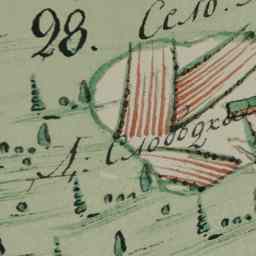 28.
Село.
Д: Слободка